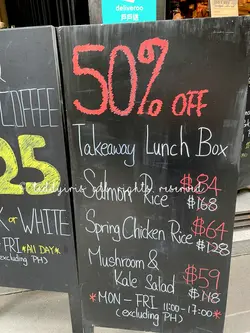 deliveroo
50% OFF
Takeaway Lunch Box
Salmon Rice $84
$168
Spring Chicken Rice $64
$128
Mushroom &
Kale Salad $59
$118
*MON - FRI 11:00-17:00*
(excluding PH)
COFFEE
25
OR WHITE
FRI *ALL DAY*
(excluding PH)
all rights reserved